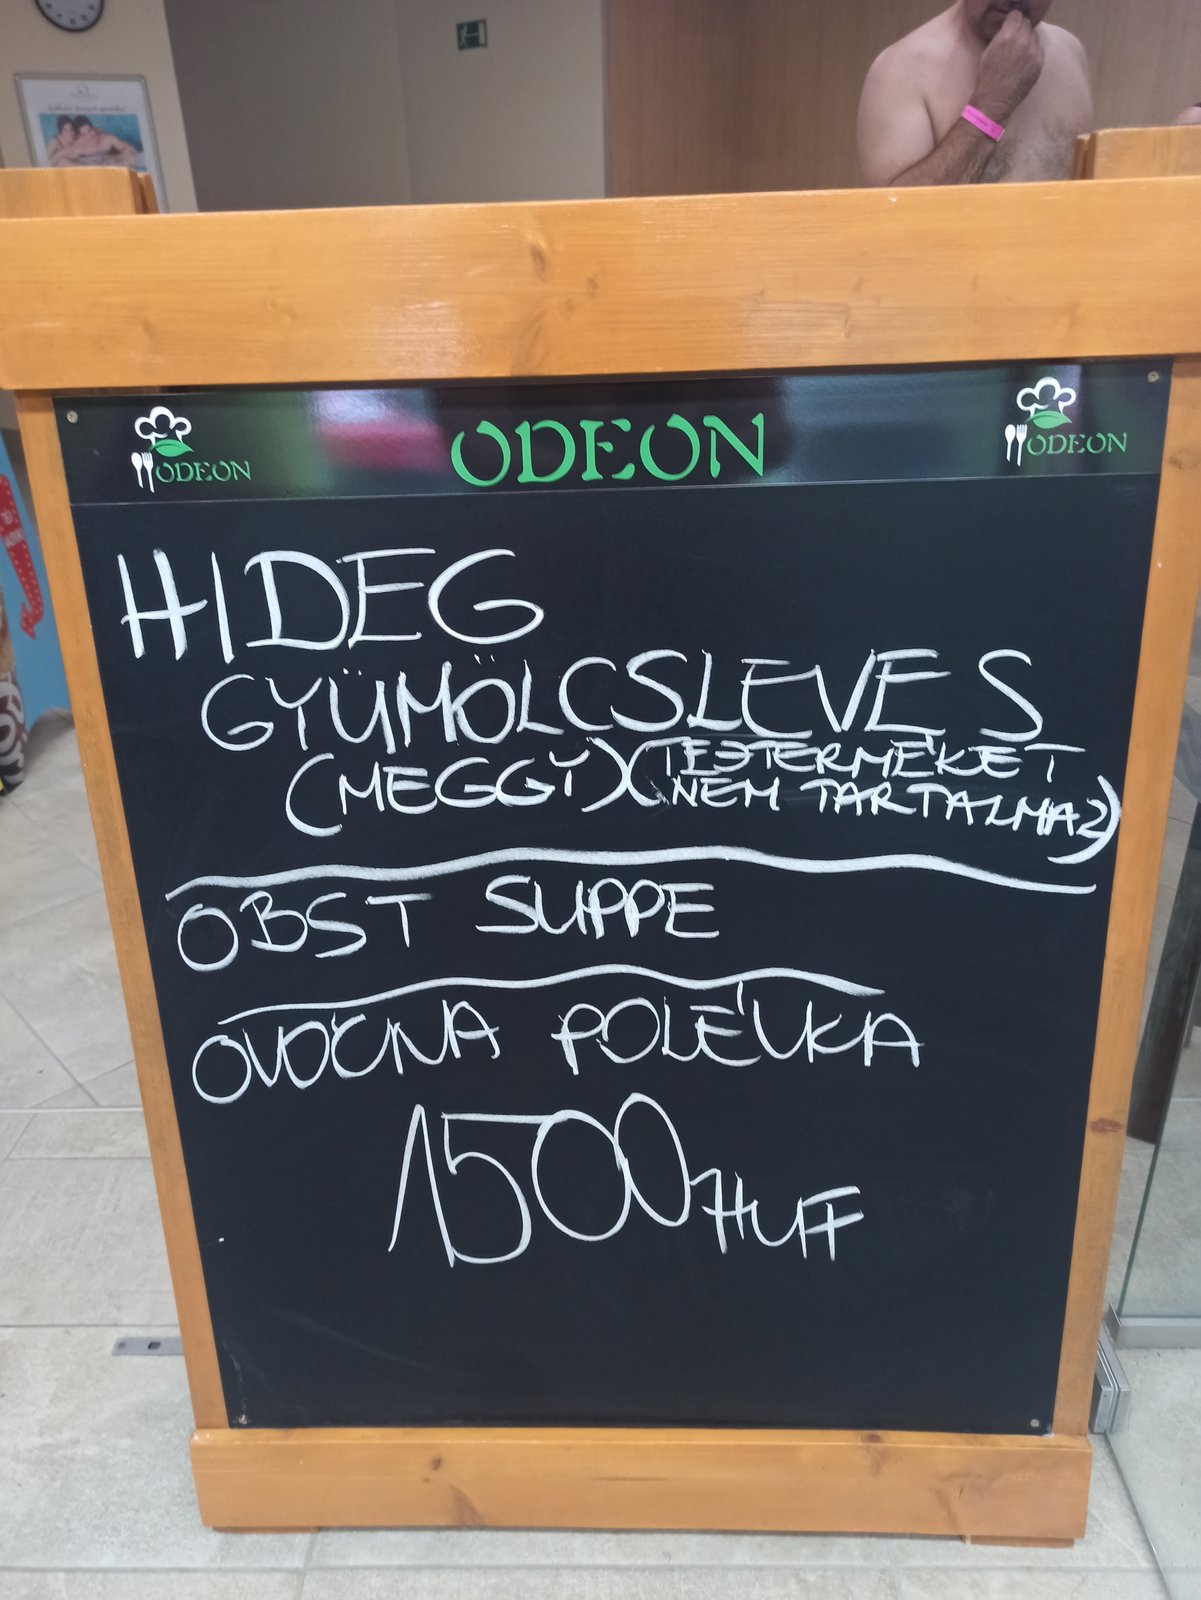 ODEON
ODEON
ODEON
HIDEG
GYÜMÖLCSLEVES
(MEGGY) (TEJTERMÉKET
NEM TARTALMAZ)
OBST SUPPE
OVOCNA POLÉVKA
1500 HUF